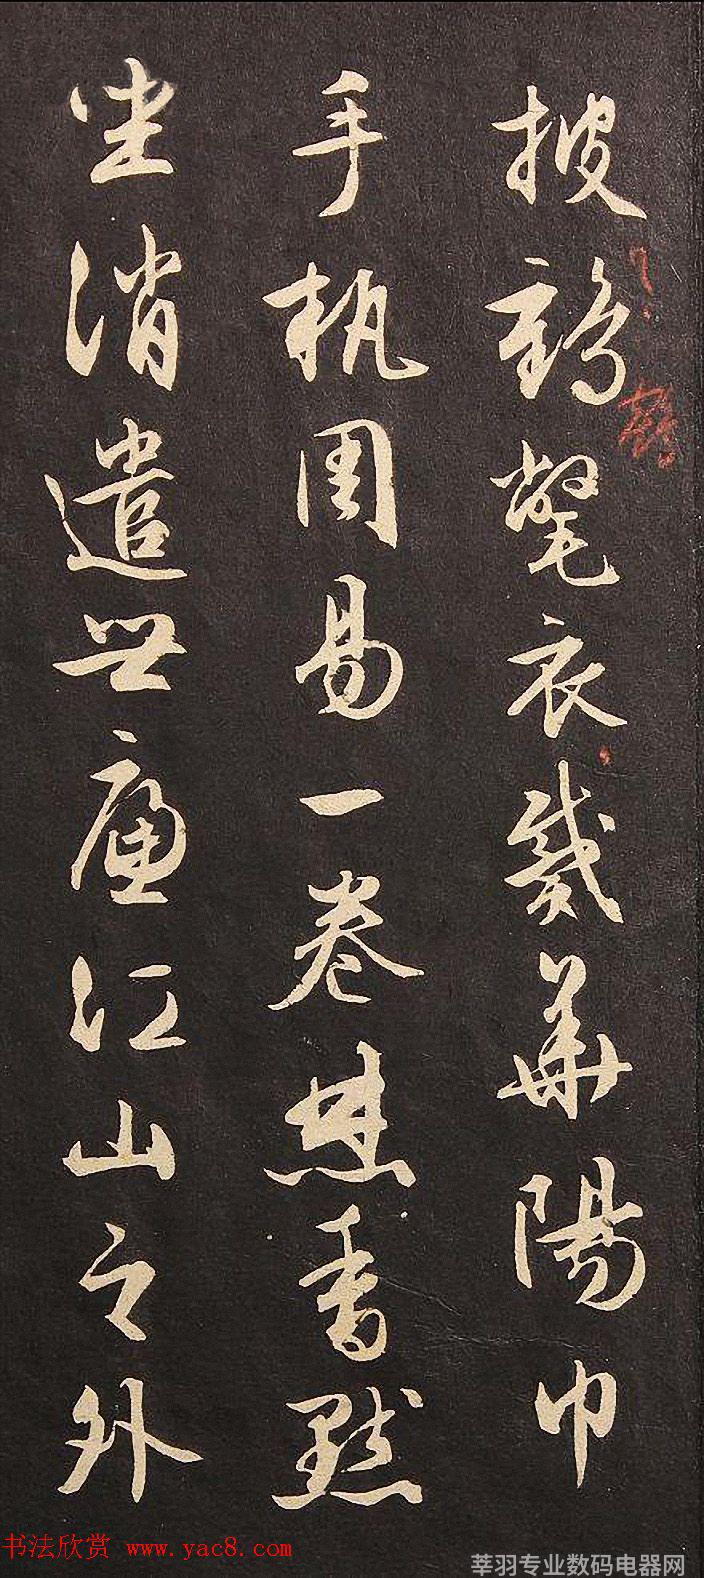 披鶴氅衣戴華陽巾
手執周易一卷焚香默
坐消遣世慮江山之外
鶴
书法欣赏 www.yac8.com
莘羽专业数码电器网